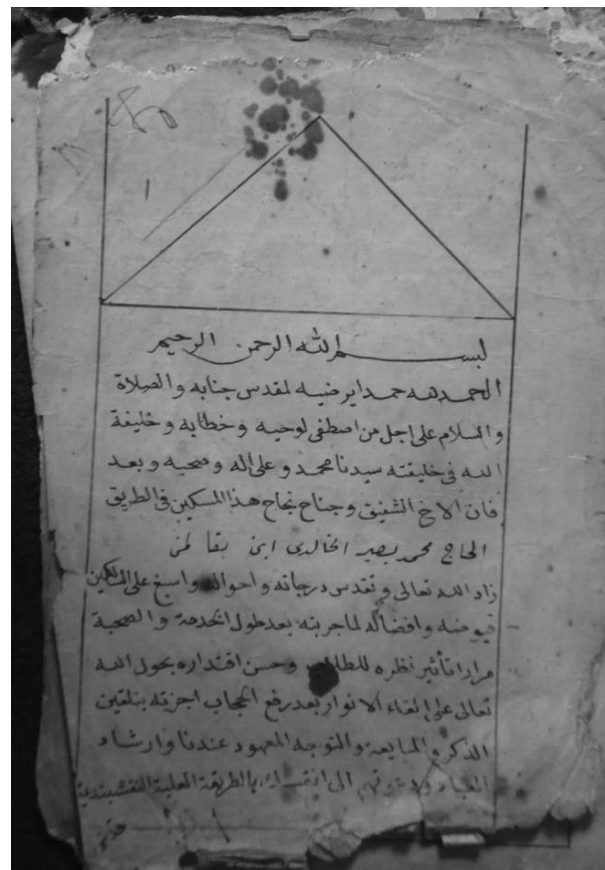 بسم الله الرحمن الرحيم
الحمد لله حمدا يرضيه لمقدس جنابه والصلاة
والسلام على اجل من اصطفى لوحيه وخطابه وخليفة
الله فى خليقته سيدنا محمد وعلى اله وصحبه وبعد
فان الاخ الشفيق وجناح نجاح هذا المسكين فى الطريق
الحاج محمد بصير الخالدى ابن
زاد الله تعالى وتقدس درجاته واحواله واسبغ على السالكين
فيوضه وافضاله لما جربته بعد طول الخدمة والصحبة
مرارا تأثير نظره للطلاب وحسن اقتداره بحول الله
تعالى على القاء الانوار بعد رفع الحجاب اجزته بتلقين
الذكر والمبايعة والتوجه المعهود عندنا وارشاد
العباد ودعوتهم الى التمسك بالطريقة العلية النقشبندية